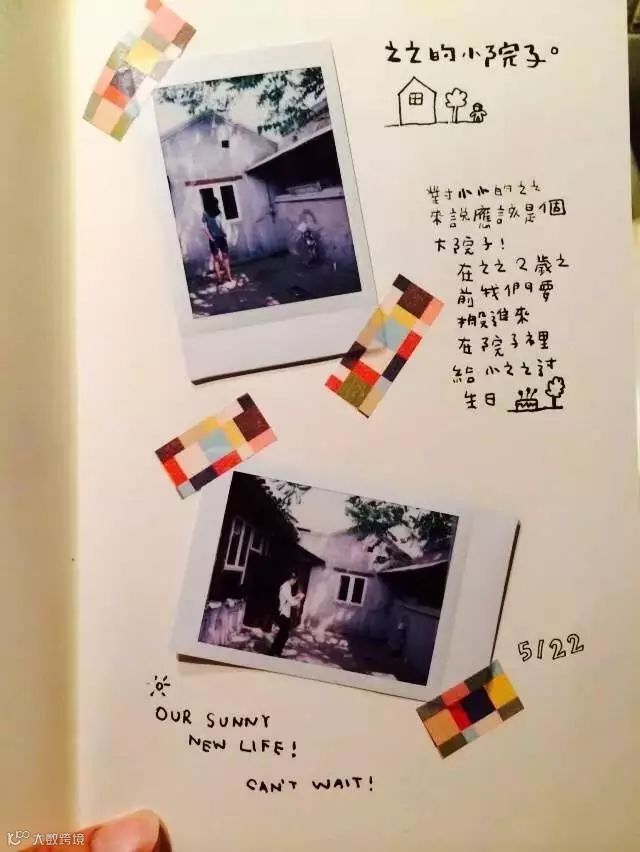 之之的小院子。
對小小的之之
來說應該是個
大院子!
在之之2歲之
前我們要
搬進來
在院子裡
給小之之討
生日
5/22
OUR SUNNY
NEW LIFE!
CAN'T WAIT!
大数跨境